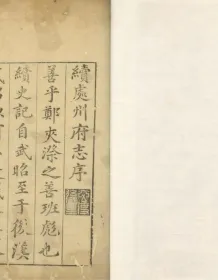 續處州府志序
善乎鄭夾漈之善班彪也
續史記自武昭至于後漢